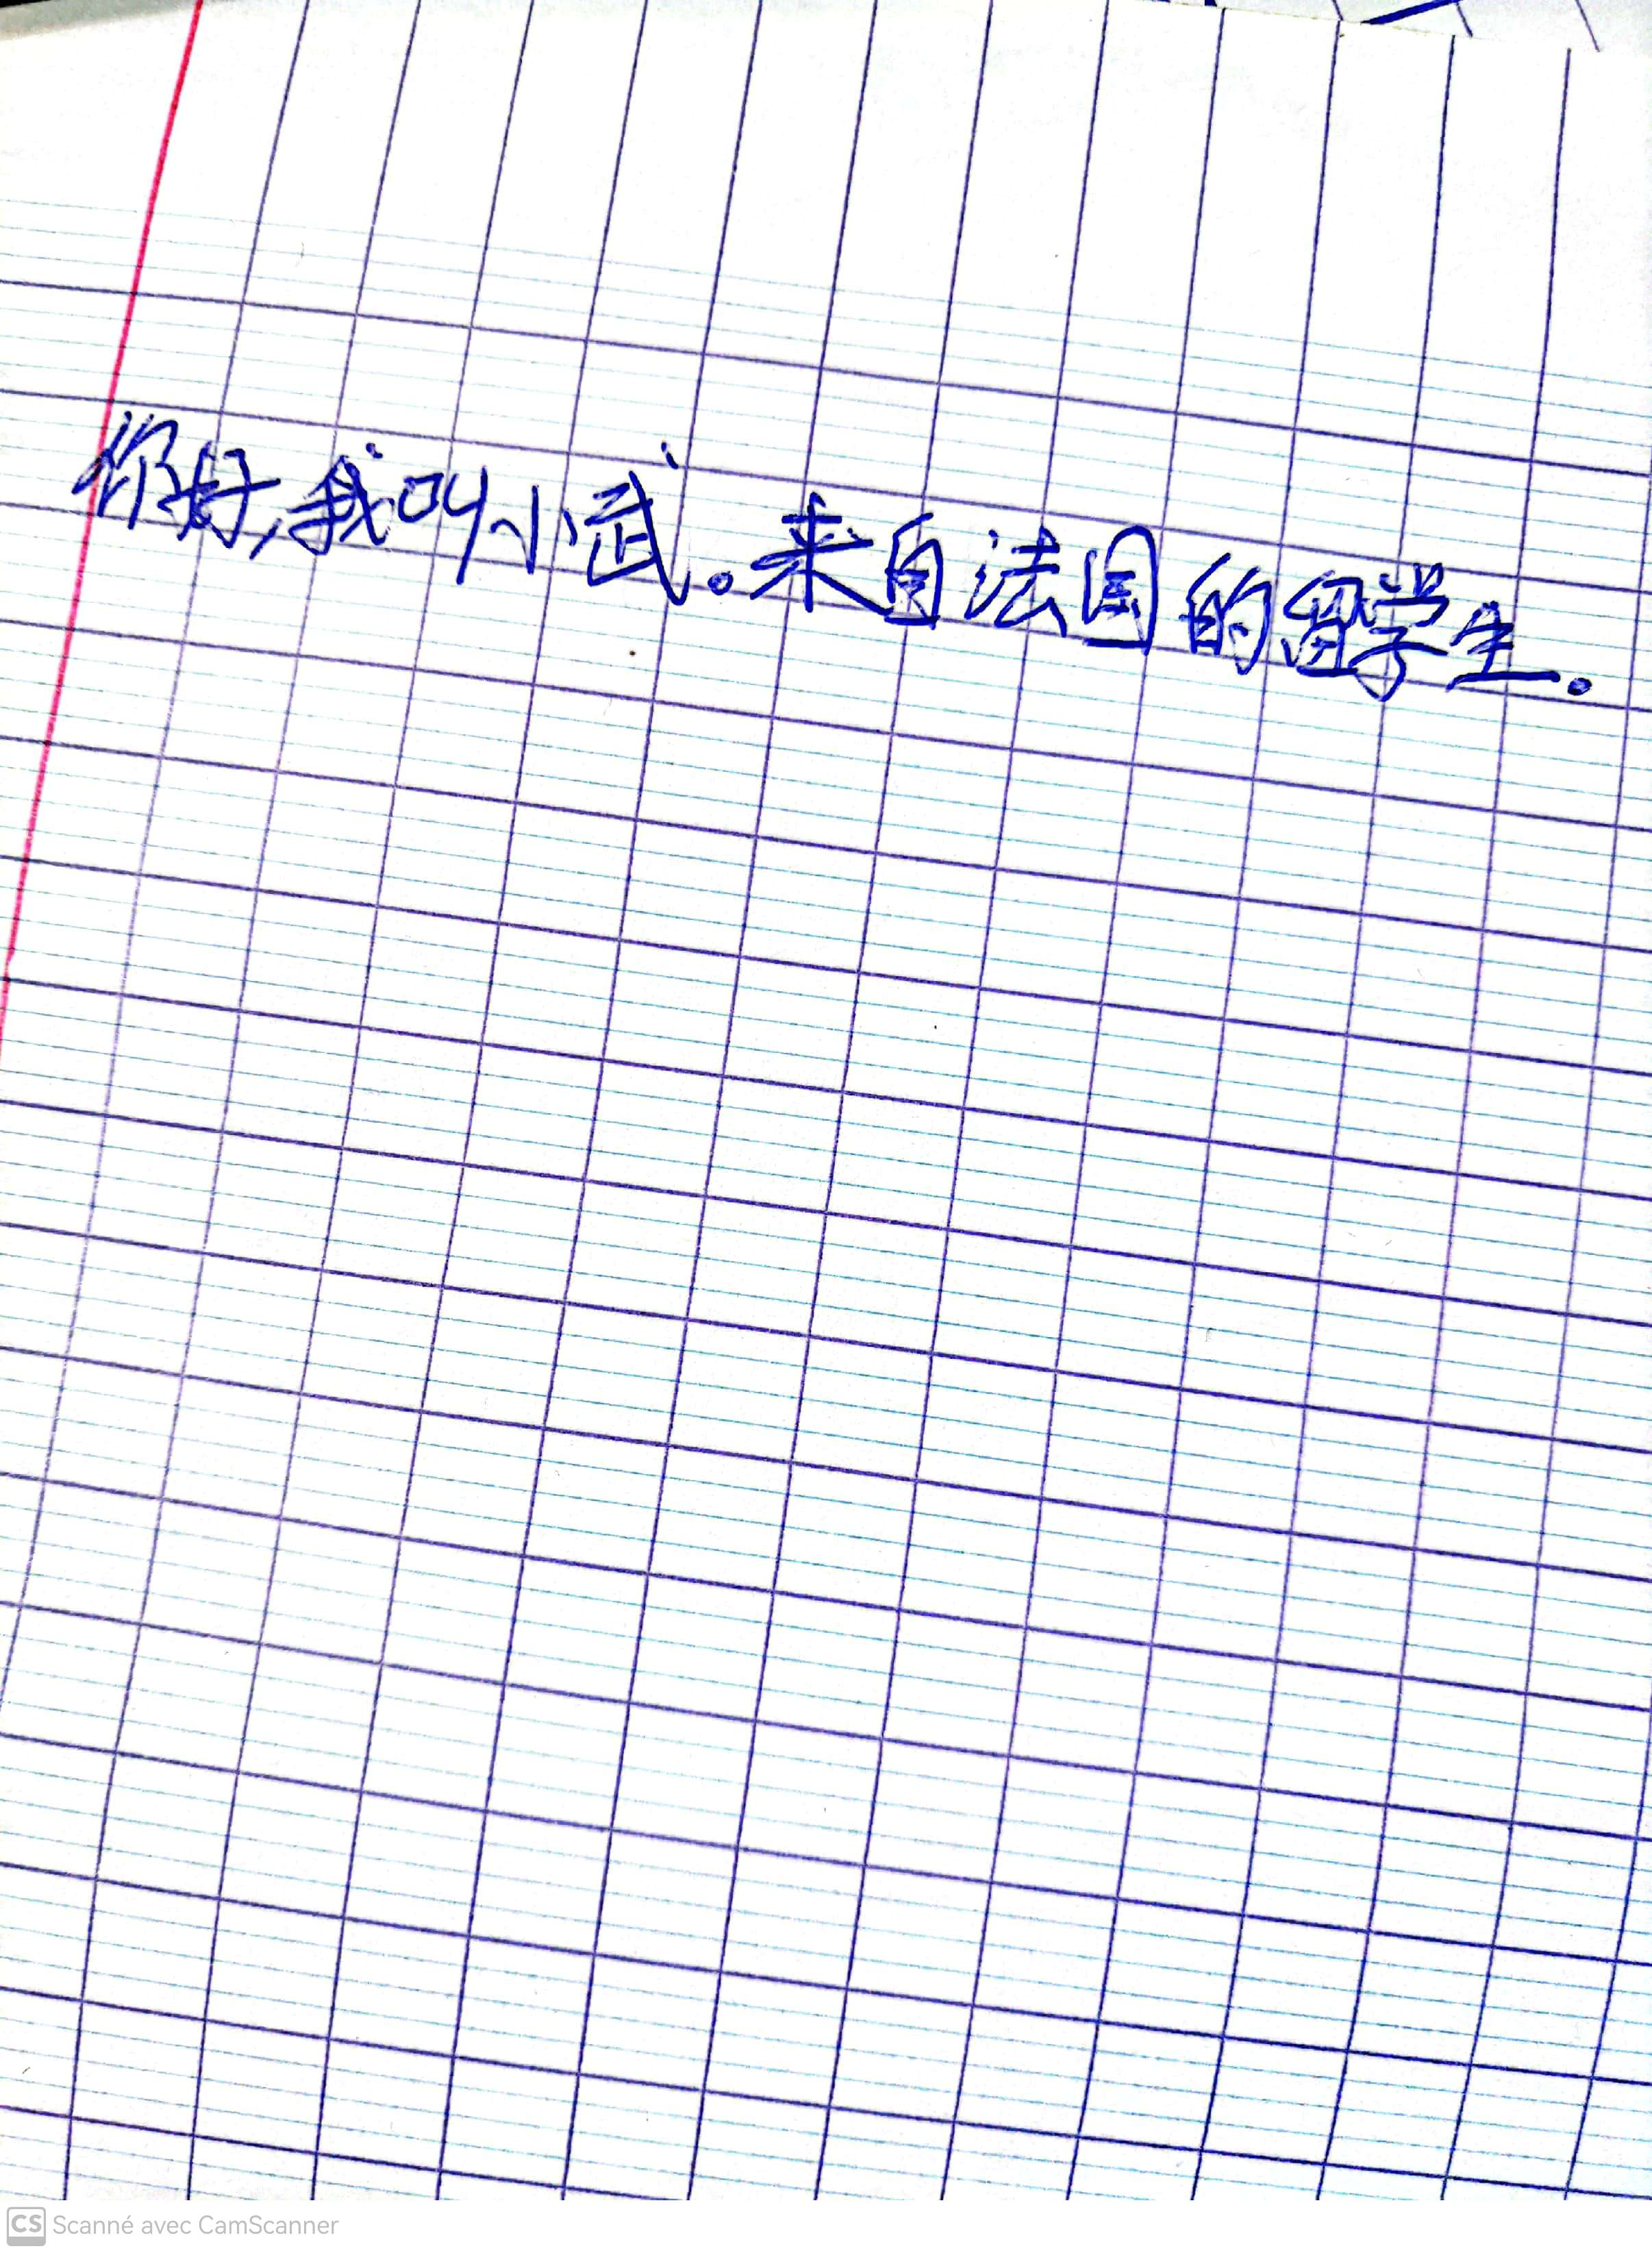 你好,我叫小武。来自法国的留学生。
CS Scanné avec CamScanner